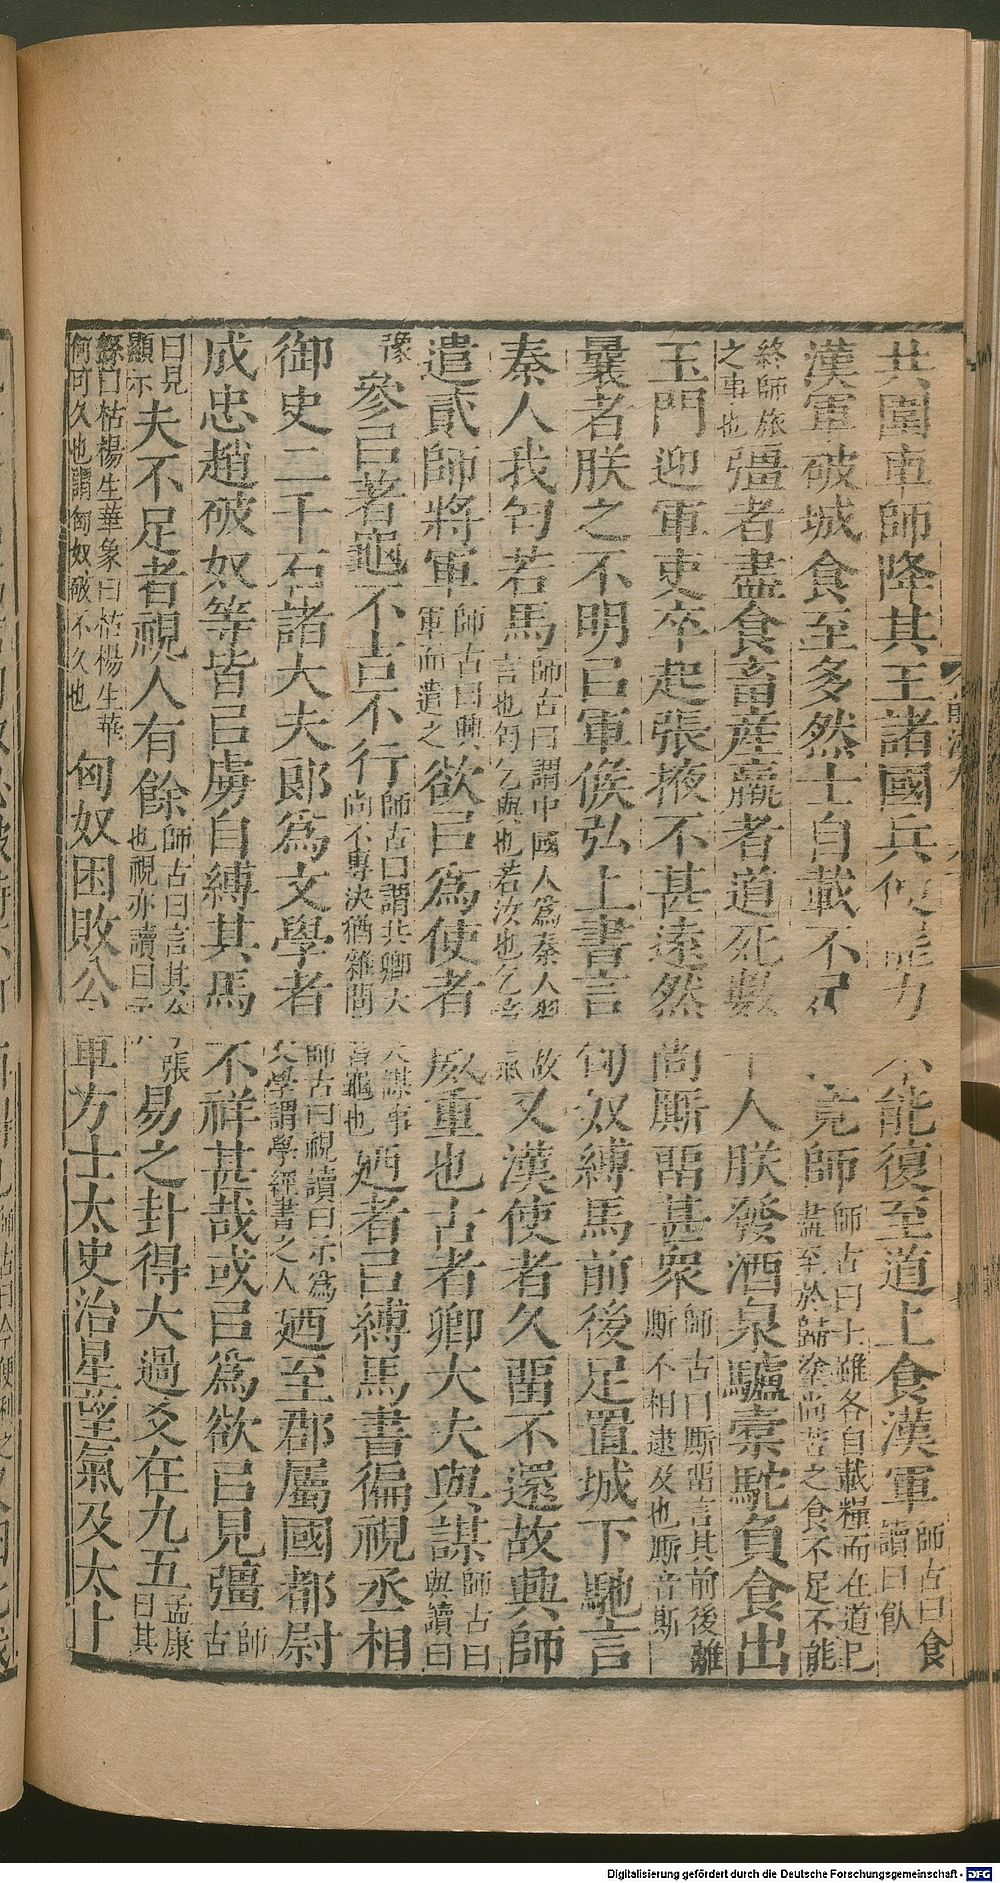 共圍車師降其王諸國兵便罷力不能復至道上食漢軍師古曰食讀曰飤
漢軍破城食至多然士自載不足竟師師古曰士雖各自載糧而在道已盡至於歸塗尚苦之食不足不能
終師旅之事也彊者盡食畜産羸者道死數千人朕發酒泉驢橐駝負食出
玉門迎軍吏卒起張掖不甚遠然尚厮畱甚衆師古曰厮畱言其前後離厮不相逮及也厮音斯
曩者朕之不明㠯軍候弘上書言匈奴縛馬前後足置城下馳言
秦人我匄若馬師古曰謂中國人爲秦人習故言也匄乞與也若汝也乞音氣又漢使者久畱不還故興師
遣貳師將軍師古曰興軍而遣之欲㠯爲使者威重也古者卿大夫與謀師古曰與讀曰
豫參㠯蓍龜不吉不行師古曰謂共卿大夫謀事尚不專決猶雜問蓍龜也廼者㠯縛馬書徧視丞相
御史二千石諸大夫郎爲文學者師古曰視讀曰示爲文學謂學經書之人廼至郡屬國都尉
成忠趙破奴等皆㠯虜自縛其馬不祥甚哉或㠯爲欲㠯見彊師古
曰見顯示夫不足者視人有餘師古曰言其夸張也視亦讀曰示易之卦得大過爻在九五孟康曰其
繇曰枯楊生華象曰枯楊生華何可久也謂匈奴破不久也匈奴困敗公車方士太史治星望氣及太卜
Digitalisierung gefördert durch die Deutsche Forschungsgemeinschaft - DFG